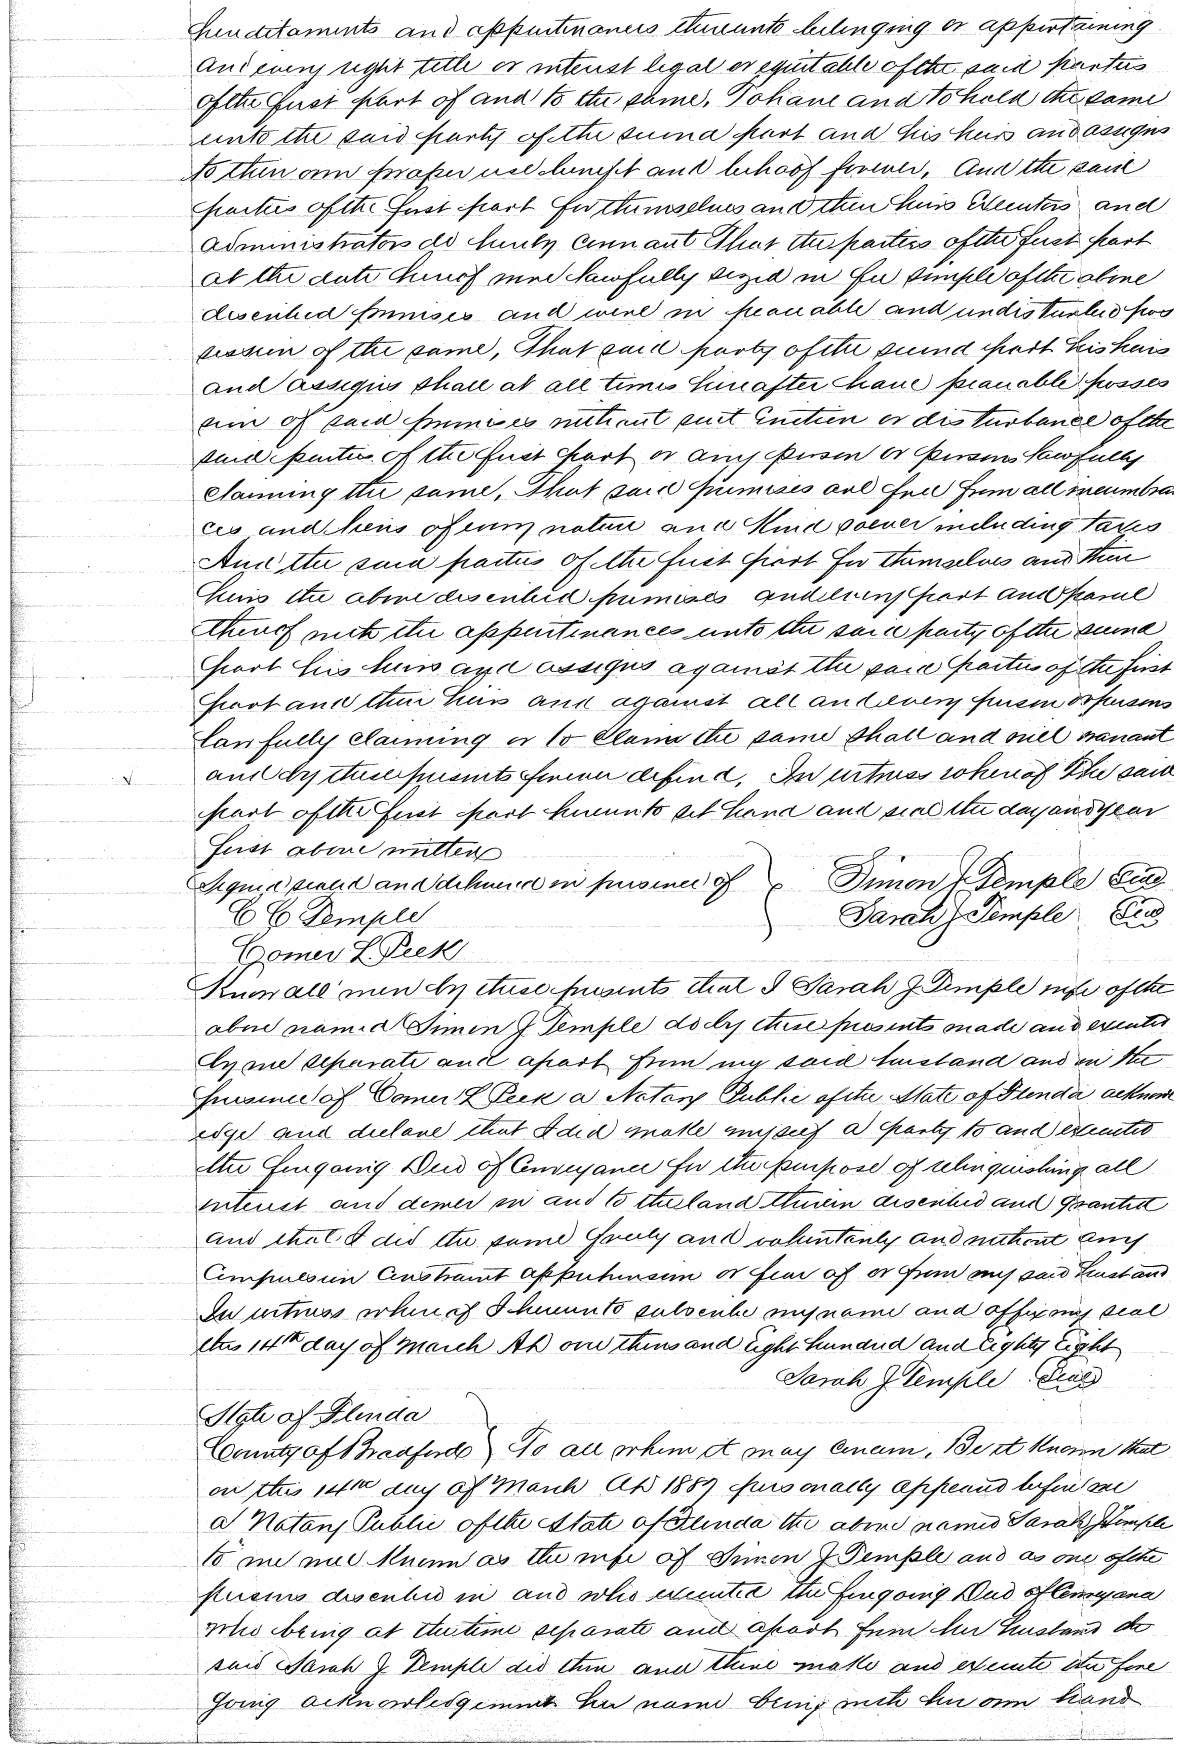 hereditaments and appurtenances thereunto belonging or appertaining
and every right title or interest legal or equitable of the said parties
of the first part of and to the same, To have and to hold the same
unto the said party of the second part and his heirs and assigns
to their own proper use benefit and behoof forever, And the said
parties of the first part for themselves and their heirs Executors and
administrators do hereby covenant that the parties of the first part
at the date hereof were lawfully seized in fee simple of the above
described premises and were in peaceable and undisturbed pos
session of the same, That said party of the second part his heirs
and assigns shall at all times hereafter have peaceable posses
sion of said premises without suit Eviction or disturbance of the
said parties of the first part or any person or persons lawfully
claiming the same, That said premises are free from all incumbran
ces and liens of every nature and Kind soever including taxes
And the said parties of the first part for themselves and their
heirs the above described premises and every part and parcel
thereof with the appurtinances unto the said party of the second
part his heirs and assigns against the said parties of the first
part and their heirs and against all and every person or persons
lawfully claiming or to claim the same shall and will warrant
and by these presents forever defend, In witness whereof the said
part of the first part hereunto set hand and seal the day and year
first above written
Signed sealed and delivered in presence of } Simon J Temple Seal
C C Temple Sarah J Temple Seal
Comer L. Peek
Know all men by these presents that I Sarah J Temple wife of the
above named Simon J Temple do by these presents made and executed
by me separate and apart from my said husband and in the
presence of Comer L Peek a Notary Public of the State of Florida acknowl
edge and declare that I did make myself a party to and executed
the foregoing Deed of Conveyance for the purpose of relinquishing all
interest and dower in and to the land therein described and granted
and that I did the same freely and voluntarily and without any
Compulsion Constraint apprehension or fear of or from my said husband
In witness whereof I hereunto subscribe my name and affix my seal
this 14th day of March AD one thousand Eight hundred and Eighty Eight
Sarah J Temple Seal
State of Florida
County of Bradford } To all whom it may concern, Be it Known that
on this 14th day of March AD 1889 personally appeared before me
a Notary Public of the State of Florida the above named Sarah J Temple
to me well Known as the wife of Simon J Temple and as one of the
persons described in and who executed the foregoing Deed of Conveyance
who being at the time separate and apart from her husband the
said Sarah J Temple did then and there make and execute the fore
going acknowledgement her name being with her own hand